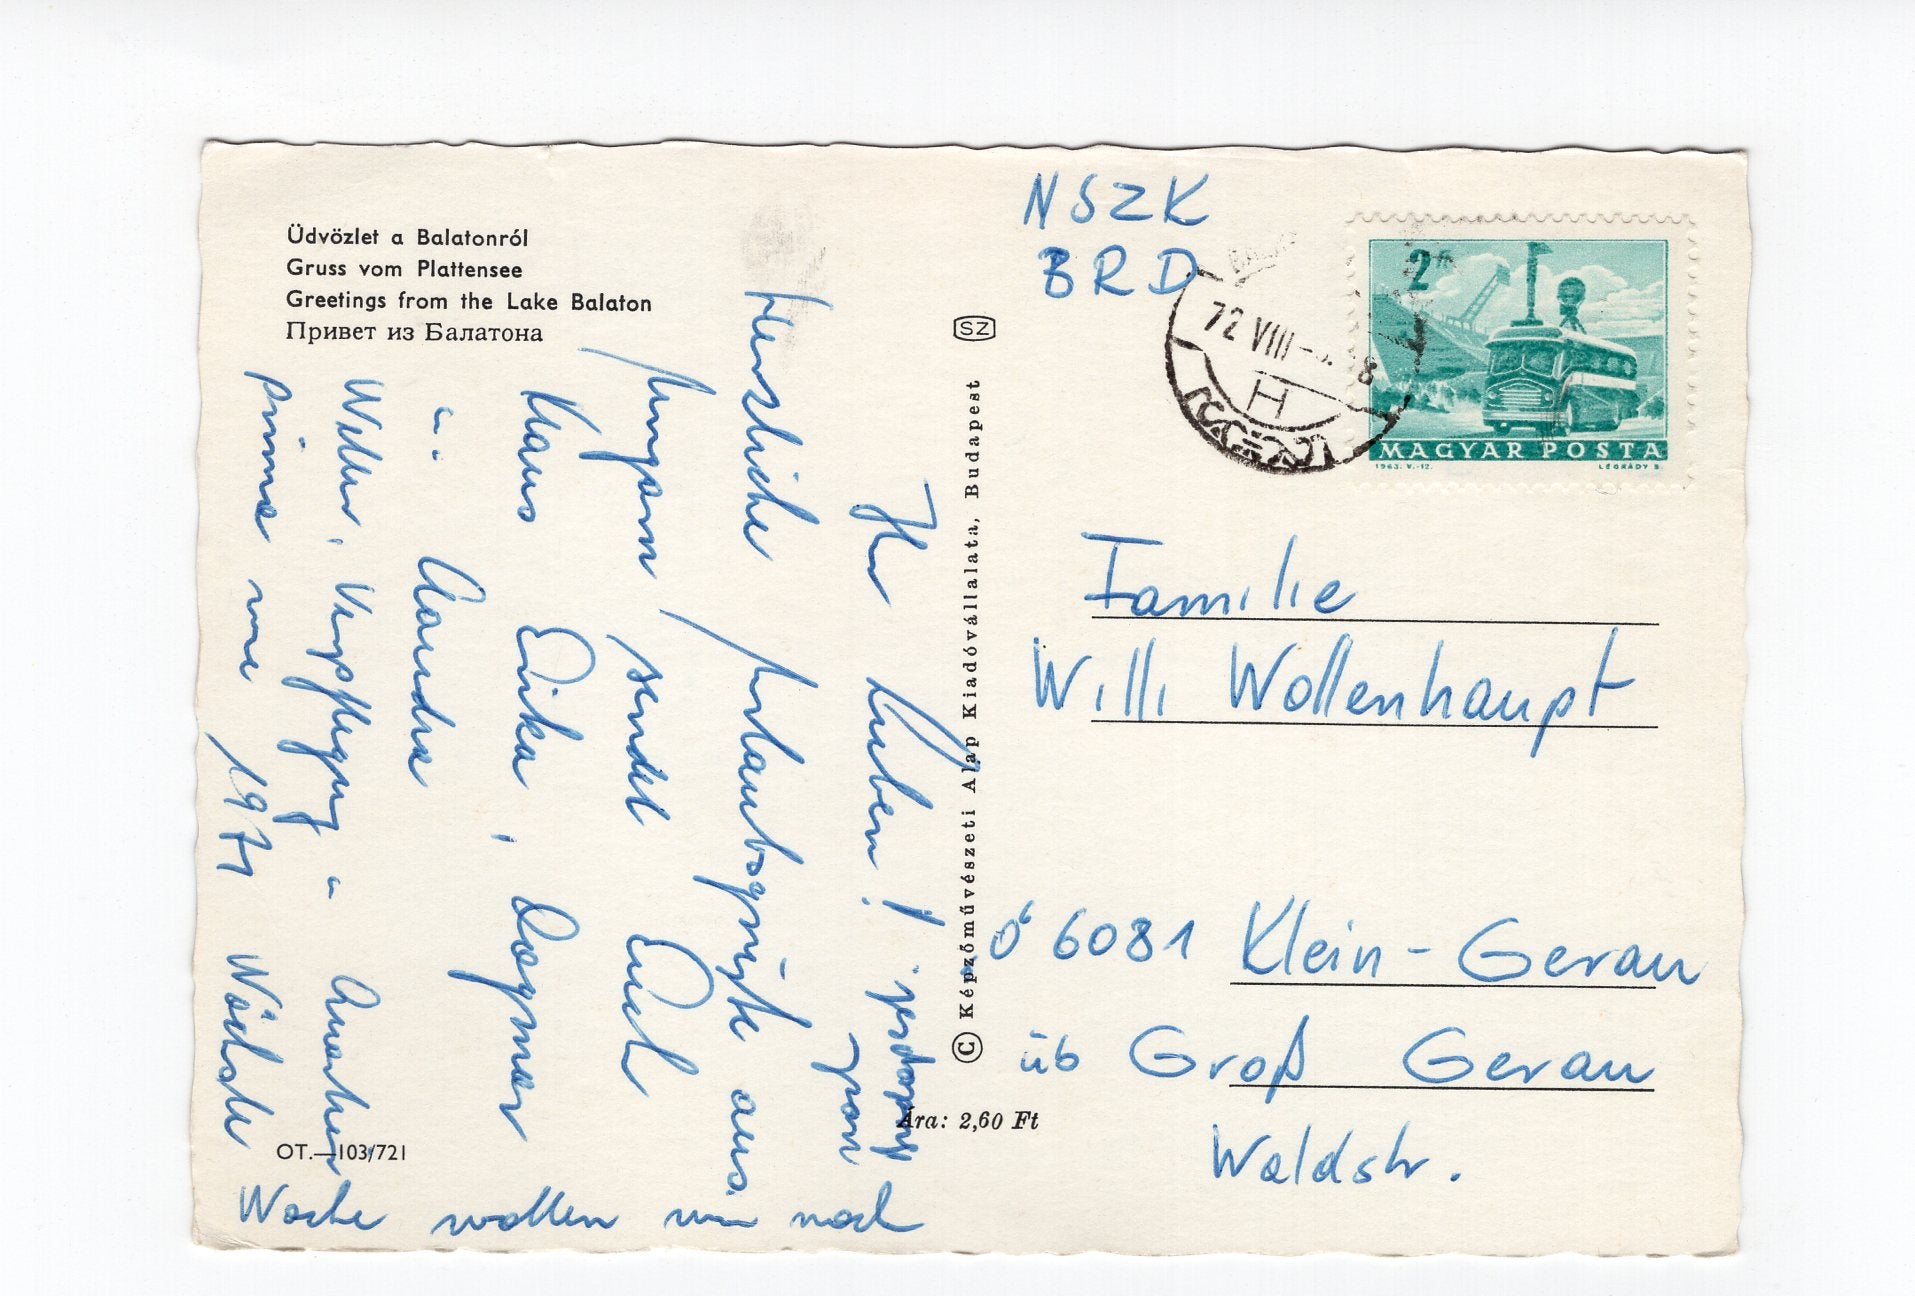 Üdvözlet a Balatonról
Gruss vom Plattensee
Greetings from the Lake Balaton
Привет из Балатона
Ihr Lieben!
Herzliche Urlaubsgrüße aus
Ungarn sendet Euch
Klaus Erika, Dagmar
u. Claudia
Wetter, Verpflegung u.
prima wie 1971 Nächste
Woche wollen wir noch
OT.—103/721
SZ
© Képzőművészeti Alap Kiadóvállalata, Budapest
Ára: 2,60 Ft
NSZK
BRD
72 VIII
H
2
MAGYAR POSTA
1963. V.-12.
LÉGRÁDY S.
Familie
Willi Wollenhaupt
6081 Klein-Gerau
üb Groß Gerau
Waldstr.